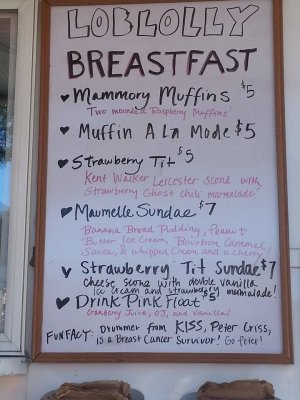 LOBLOLLY
BREASTFAST
Mammory Muffins $5
Two mounded Raspberry Muffins!
Muffin A La Mode $5
Strawberry Tit $5
Kent Walker Leicester scone with
Strawberry Ghost Chili marmalade
Maumelle Sundae $7
Banana Bread Pudding, Peanut
Butter Ice Cream, Bourbon Caramel
Sauce, & whipped Cream and a cherry
Strawberry Tit Sundae $7
cheese scone with double vanilla
ice cream and strawberry marmalade!
Drink Pink Float $5
Cranberry Juice, OJ, and vanilla!
FUNFACT: Drummer from KISS, Peter Criss,
is a Breast Cancer Survivor! Go Peter!